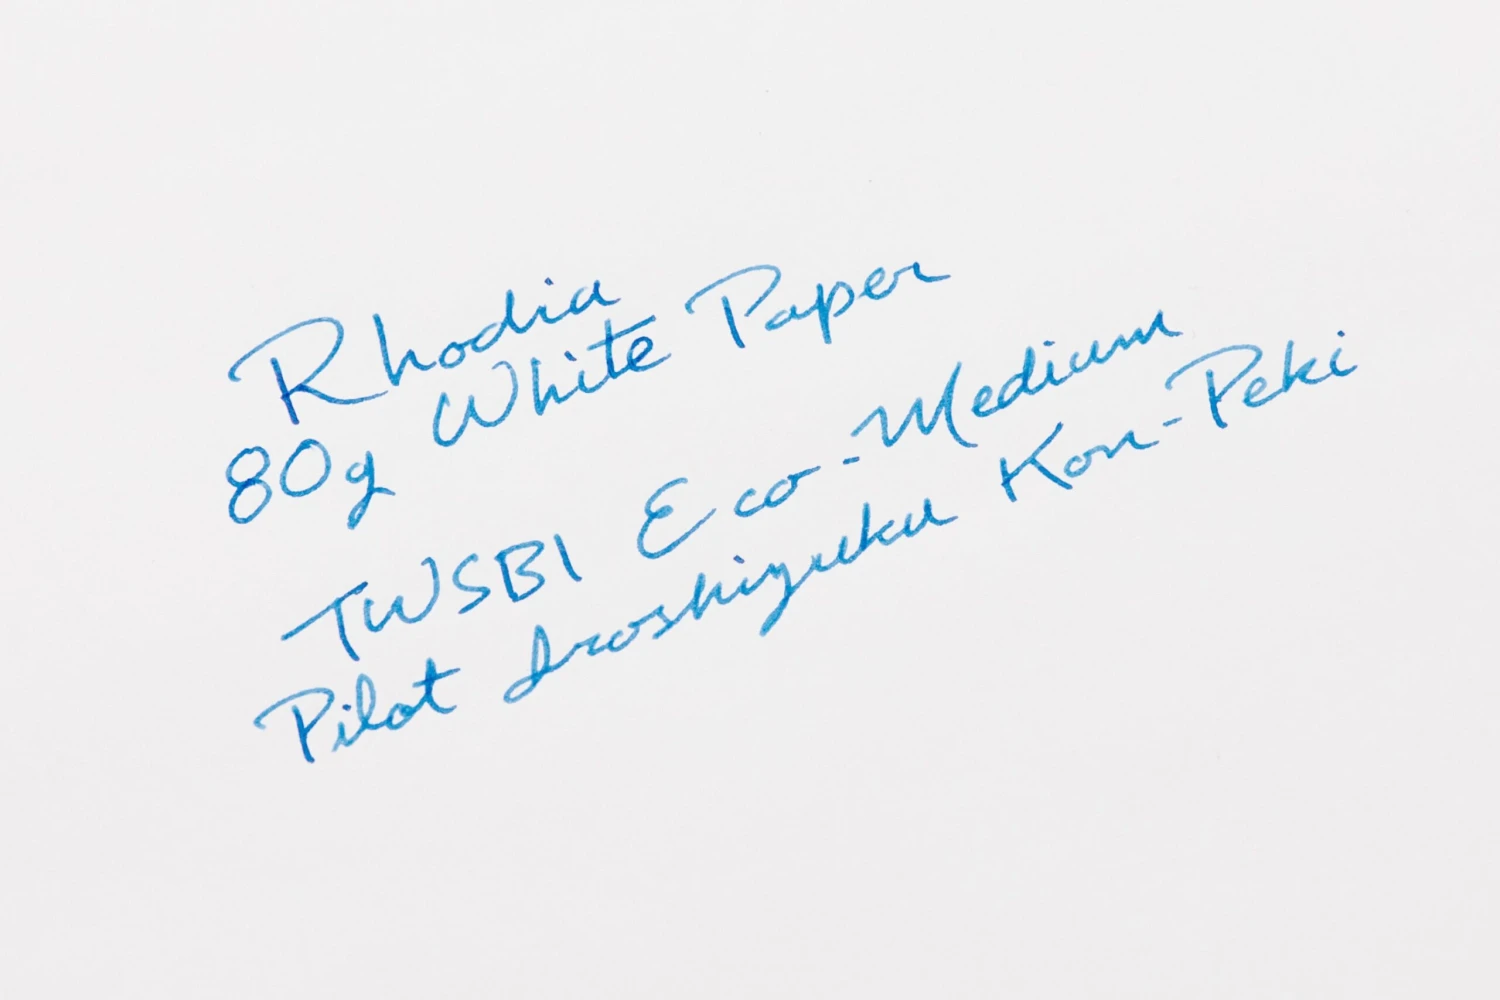 Rhodia
80g White Paper
TWSBI Eco-Medium
Pilot Iroshizuku Kon-Peki